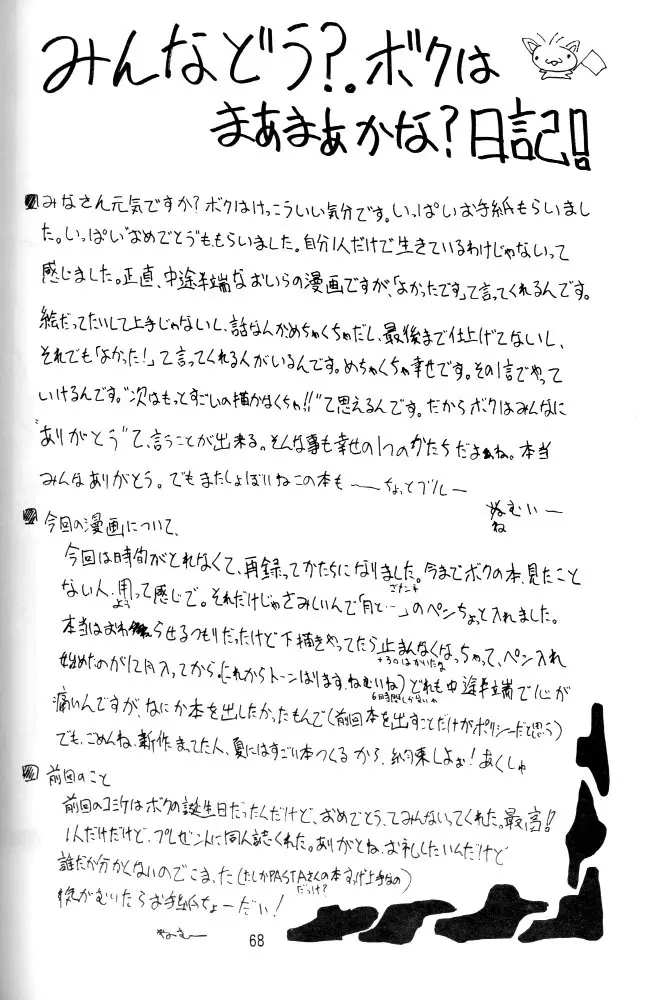 みんなどう?ボクは
まあまぁかな?日記!!
みなさん元気ですか?ボクはけっこういい気分です。いっぱいお手紙もらいまし
た。いっぱい"おめでとう"ももらいました。自分1人だけで生きているわけじゃないって
感じました。正直、中途半端なおいらの漫画ですが、「よかったです」て言ってくれるんです。
絵だってたいして上手じゃないし、話なんかめちゃくちゃだし、最後まで仕上げてないし、
それでも「よかった!」て言ってくれる人がいるんです。めちゃくちゃ幸せです。その1言でやって
いけるんです。"次はもっとすごいの描かなくちゃ!!"て思えるんです。だからボクはみんなに
"ありがとう"て、言うことが出来る。そんな事も幸せの1つのかたちだよぉね。本当
みんなありがとう。でもまたしょぼいねこの本も――ちょっとブルー
ねむいー
ね
今回の漫画について、
今回は時間がとれなくて、再録ってかたちになりました。今までボクの本、見たこと
ない人、用って感じで。それだけじゃさみしいんで「月と…」のペンちょっと入れました。
よう
本当はおわらせるつもりだったけど下描きやってたら止まんなくなっちゃって、ペン入れ
始めたのが12月入ってから。(これからトーンはります、ねむいね)どれも中途半端で心が
痛いんですが、なにか本を出したかったもんで(前回本を出すことだけがポリシーだと思う)
でも、ごめんね、新作まってた人、夏にはすごい本つくるから、約束しよぉ!あくしゅ
前回のこと
前回のコミケはボクの誕生日だったんだけど、おめでとう、てみんないってくれた。最高!!
1人だけだけど、プレゼントに同人誌くれた。ありがとね、お礼したいんだけど
誰だか分かんないのでこまった(たしかPASTAさんの本すげ上手なの)
だっけ?
気がむいたらお手紙ちょーだい!
ねむー
68